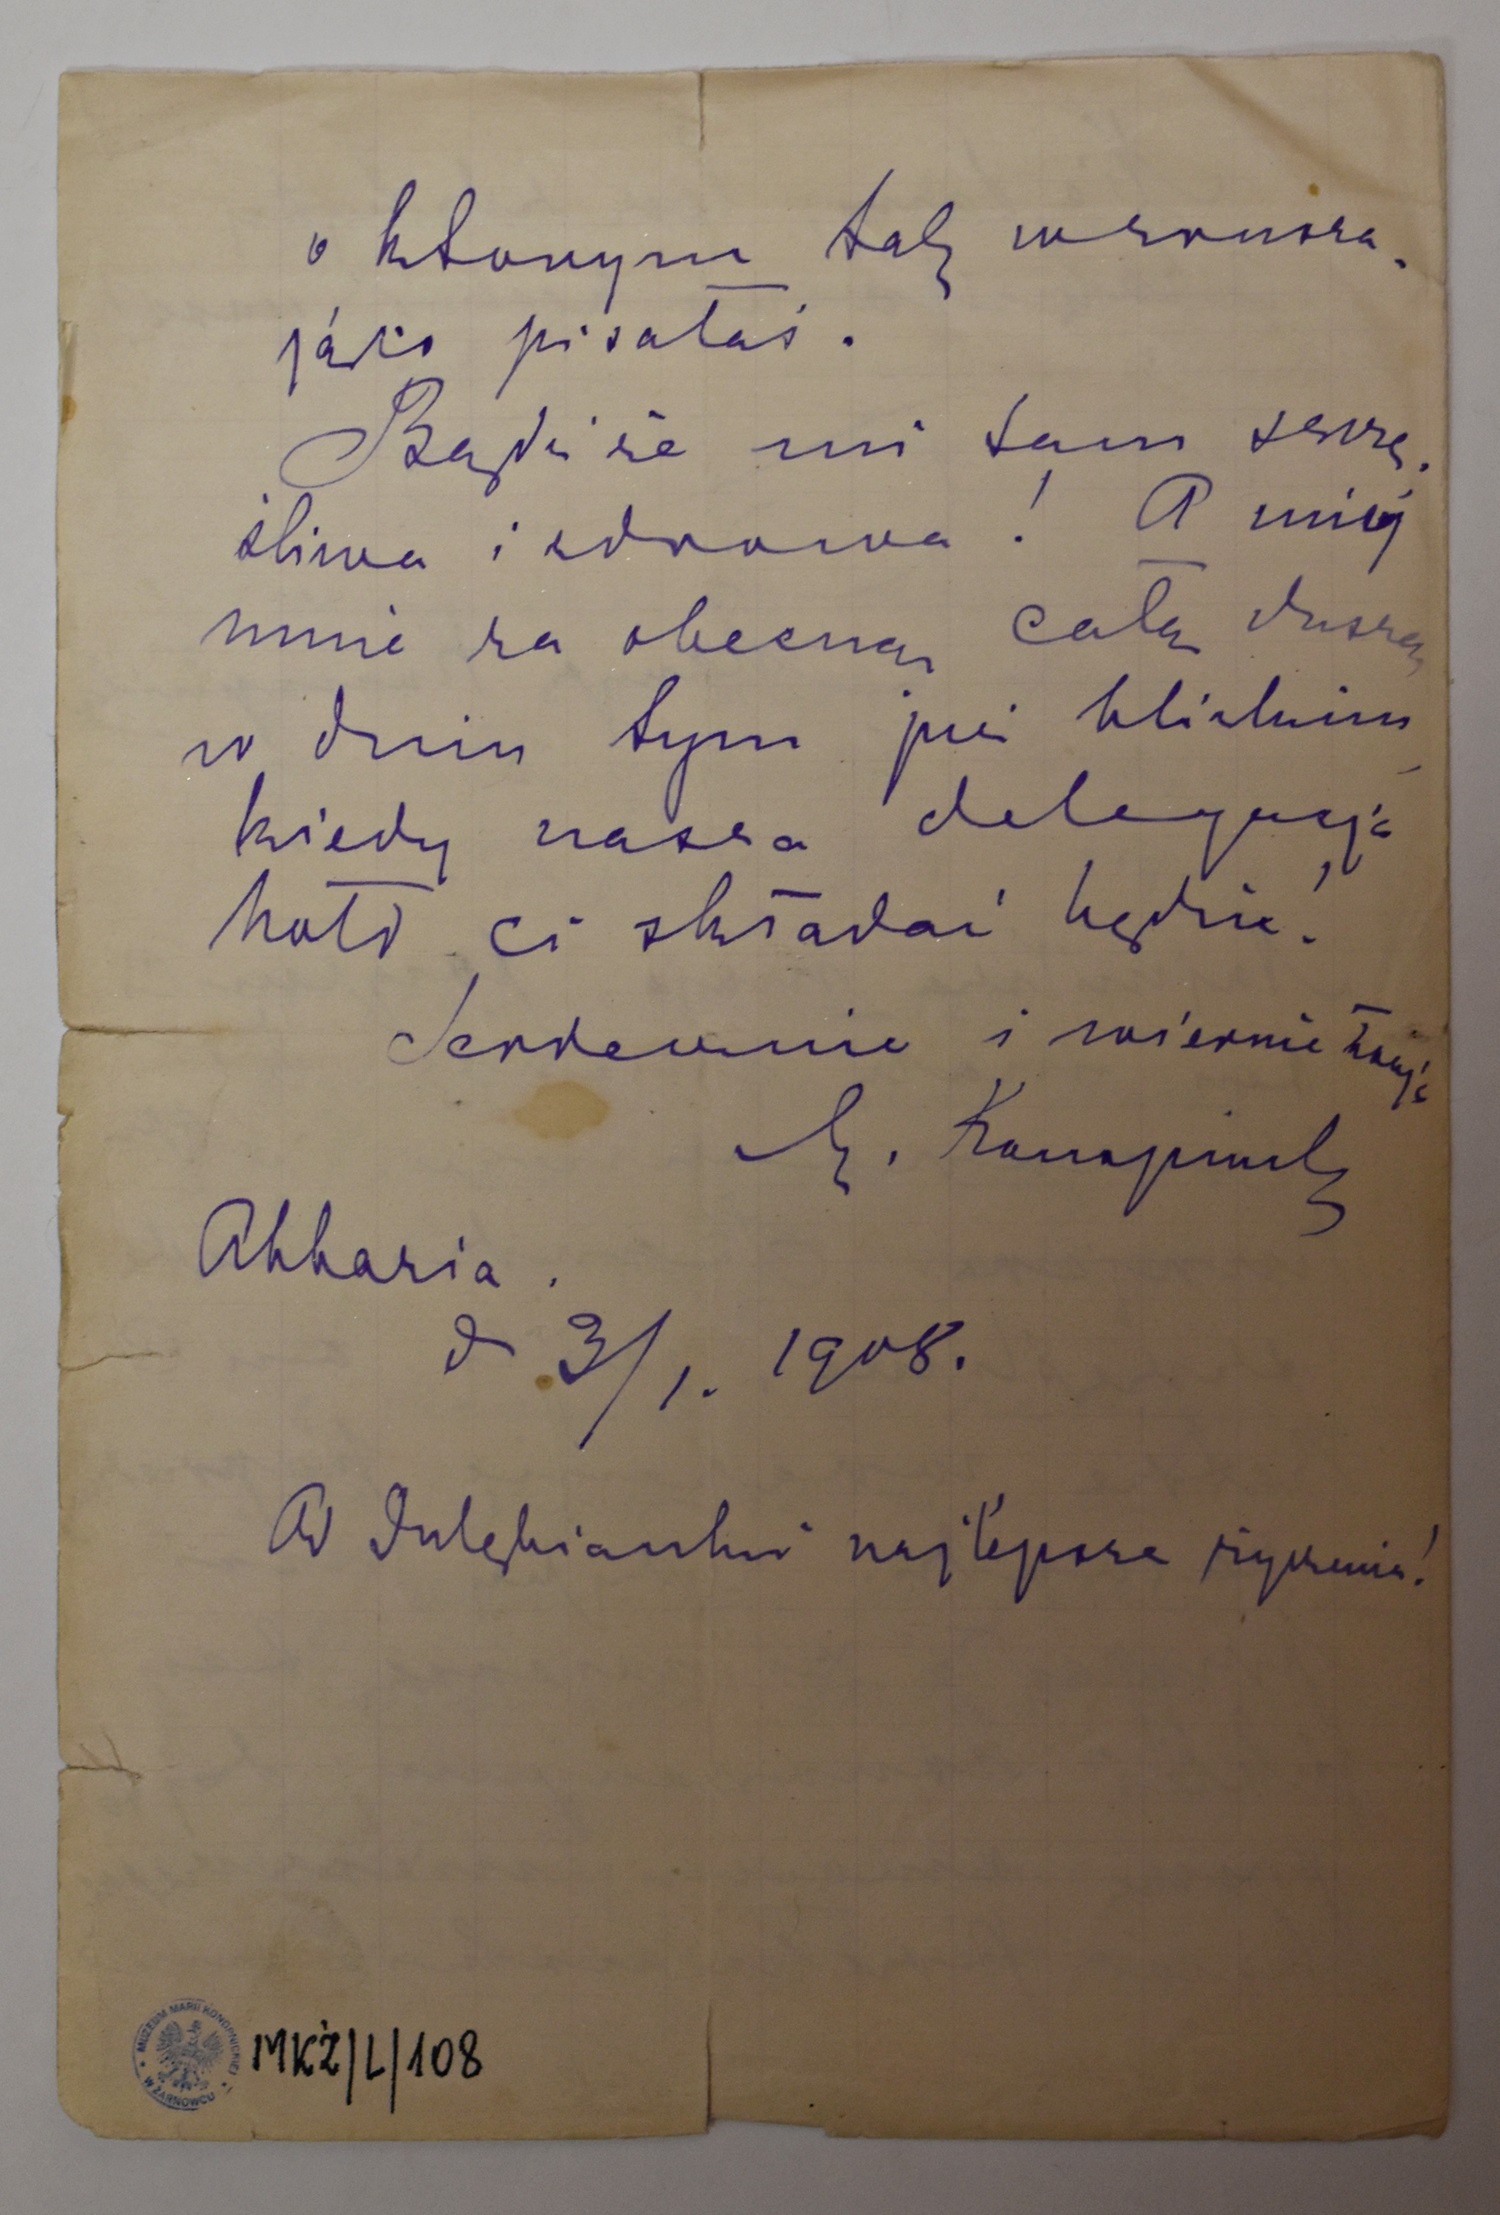 o którym tak wzrusza-
jąco pisałaś.
Bądźże mi tam szczę-
śliwa i zdrowa! A miej
mnie za obecną całą duszą
w dniu tym już blizkim
kiedy nasza delegacja
hołd ci składać będzie!
Serdecznie i wiernie twoja
M. Konopnicka
Abbazia.
d 3/1. 1908.
Od Dulębianki najlepsze życzenia!
MUZEUM MARII KONOPNICKIEJ W ŻARNOWCU
MKŻ/L/108